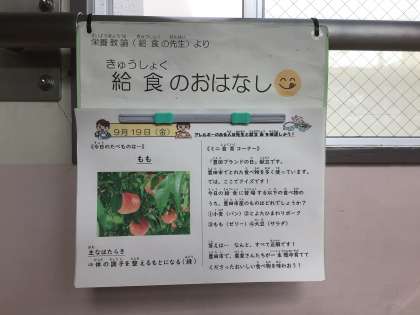 栄養教諭(給食の先生)より
きゅうしょく
給食のおはなし
9月19日(金)
アレルギーのある人は先生と献立表を確認しよう!
《今日のたべものは…》
もも
主なはたらき
⇒体の調子を整えるもとになる(緑)
《ミニ食育コーナー》
「豊田ブランドの日」献立です。
豊田市でとれた食べ物を多く使っています。
では、ここでクイズです!
今日の給食に登場する以下の食べ物の
うち、豊田市産のものはどれでしょうか?
①小麦(パン) ②とよたかまわりポーク
③もも(ゼリー) ④大豆(サラダ)
答えは… なんと、すべて正解です!
豊田市で、農家さんたちが一生懸命育てて
くださったおいしい食べ物を味わおう!